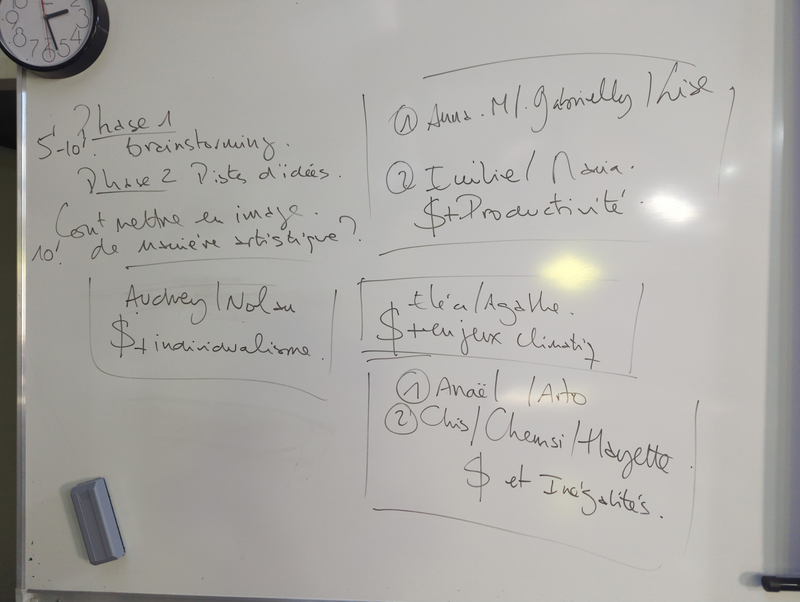 Phase 1
5'-10' : brainstorming.
Phase 2 Pistes d'idées.
Comt mettre en image.
10' de manière artistique ?
Audrey / Nolan
$ + individualisme.
① Anna. M / Gabrielly / Lise
② / Maria.
$ + Productivité
Eléa / Agathe.
$ + enjeux climatiq
① Anaël / Arto
② Chis / Chemsi / Hayette
$ et Inégalités.
9
8
7
6
5
4
3